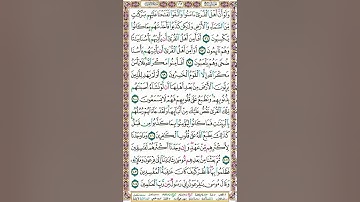 وَلَوْ أَنَّ أَهْلَ ٱلْقُرَىٰٓ ءَامَنُوا۟ وَٱتَّقَوْا۟ لَفَتَحْنَا عَلَيْهِم بَرَكَٰتٍ
مِّنَ ٱلسَّمَآءِ وَٱلْأَرْضِ وَلَٰكِن كَذَّبُوا۟ فَأَخَذْنَٰهُم بِمَا كَانُوا۟
يَكْسِبُونَ ۝ أَفَأَمِنَ أَهْلُ ٱلْقُرَىٰٓ أَن يَأْتِيَهُم بَأْسُنَا بَيَٰتًا
وَهُمْ نَآئِمُونَ ۝ أَوَأَمِنَ أَهْلُ ٱلْقُرَىٰٓ أَن يَأْتِيَهُم بَأْسُنَا
ضُحًى وَهُمْ يَلْعَبُونَ ۝ أَفَأَمِنُوا۟ مَكْرَ ٱللَّهِ فَلَا يَأْمَنُ
مَكْرَ ٱللَّهِ إِلَّا ٱلْقَوْمُ ٱلْخَٰسِرُونَ ۝ أَوَلَمْ يَهْدِ لِلَّذِينَ
يَرِثُونَ ٱلْأَرْضَ مِنۢ بَعْدِ أَهْلِهَآ أَن لَّوْ نَشَآءُ أَصَبْنَٰهُم
بِذُنُوبِهِمْ وَنَطْبَعُ عَلَىٰ قُلُوبِهِمْ فَهُمْ لَا يَسْمَعُونَ ۝
تِلْكَ ٱلْقُرَىٰ نَقُصُّ عَلَيْكَ مِنْ أَنۢبَآئِهَا وَلَقَدْ جَآءَتْهُمْ رُسُلُهُم
بِٱلْبَيِّنَٰتِ فَمَا كَانُوا۟ لِيُؤْمِنُوا۟ بِمَا كَذَّبُوا۟ مِن قَبْلُ
كَذَٰلِكَ يَطْبَعُ ٱللَّهُ عَلَىٰ قُلُوبِ ٱلْكَٰفِرِينَ ۝ وَمَا وَجَدْنَا
لِأَكْثَرِهِم مِّنْ عَهْدٍ وَإِن وَجَدْنَآ أَكْثَرَهُمْ لَفَٰسِقِينَ
۝ ثُمَّ بَعَثْنَا مِنۢ بَعْدِهِم مُّوسَىٰ بِـَٔايَٰتِنَآ إِلَىٰ فِرْعَوْنَ وَمَلَإِي۟هِ
فَظَلَمُوا۟ بِهَا فَٱنظُرْ كَيْفَ كَانَ عَٰقِبَةُ ٱلْمُفْسِدِينَ ۝
وَقَالَ مُوسَىٰ يَٰفِرْعَوْنُ إِنِّى رَسُولٌ مِّن رَّبِّ ٱلْعَٰلَمِينَ ۝